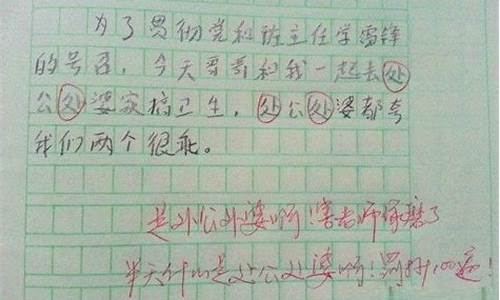 为了贯彻党和班主任学雷锋
的号召，今天哥哥和我一起去处
公处婆家搞卫生，处公处婆都夸
我们两个很乖。
是外公外婆啊！害老师琢磨了
半天什么是处公处婆啊！罚抄100遍！